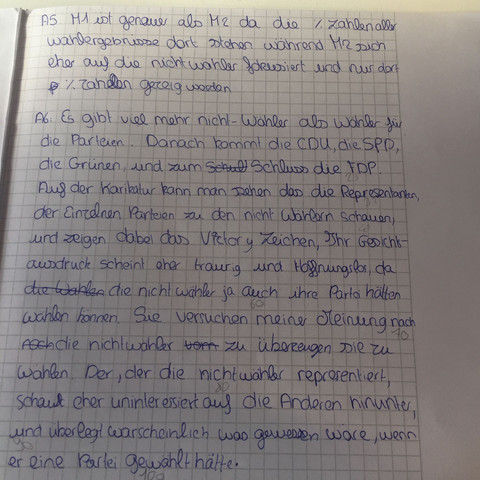 A5. M1 ist genauer als M2 da die % zahlen aller
wahlergebnisse dort stehen während M2 sich
eher auf die nichtwähler fokussiert und nur dort
% zahlen gezeigt worden
A6. Es gibt viel mehr nicht-Wähler als Wähler für
die Parteien. Danach kommt die CDU, die SPD,
die Grünen, und zum Schluss die FDP.
Auf der Karikatur kann man sehen das die Representanten,
der Einzelnen Parteien zu den nicht Wählern schauen,
und zeigen dabei das Victory Zeichen, Ihr Gesichts-
ausdruck scheint eher traurig und Hoffnungslos, da
die Wahlen die nicht wähler ja auch ihre Partei hätten
wählen können. Sie versuchen meiner Meinung nach
die nichtwähler zu überzeugen sie zu
wählen. Der, der die nichtwähler representiert,
schaut eher uninteressiert auf die Anderen hinunter,
und überlegt warscheinlich was gewesen wäre, wenn
er eine Partei gewählt hätte.